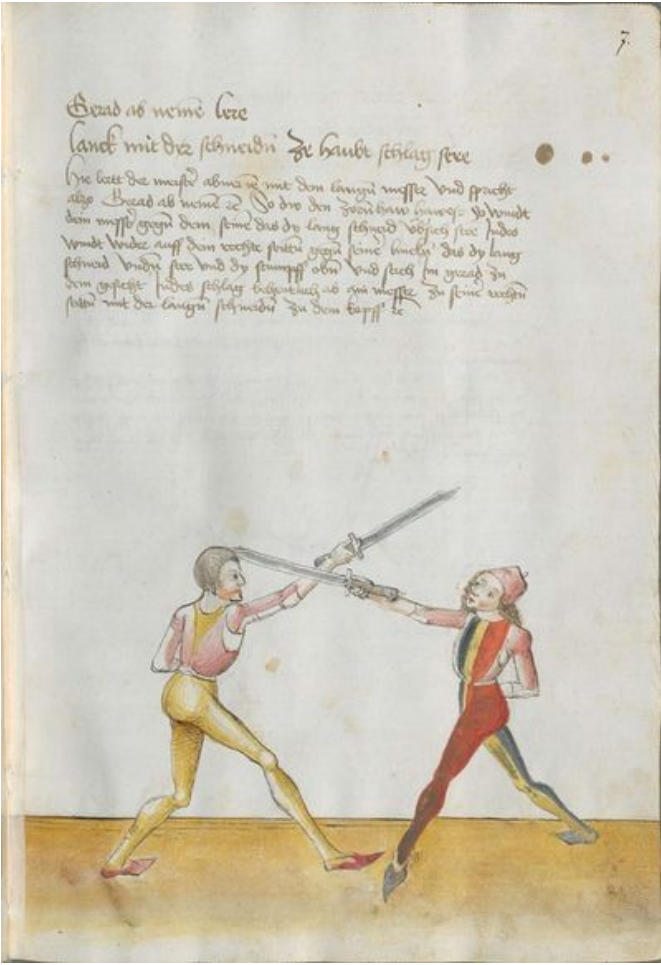 7.
Gerad ab nemē lere
lanck mit der schneidn̄ Ze haubt schlag sere
Hie lertt der meistr̄ abnemē mit dem langn̄ messer Und spricht
also Gerad ab nemē rc̄ So dir den Zorn haw hawest So windt
dein messr̄ gegn̄ dem seinē das dy lang schneid ubsich stee Indes
windt wider auff dein rechte seittn̄ gegn̄ seinē das dy lang
schneid Undn̄ stee und dy stumpff obn̄ Und stich im gerad zu
dem gesicht Indes schlag behentlich ab am messer Zu seinē rechtn̄
seittn̄ mit der langn̄ schneidn̄ Zu dem kopff rc̄